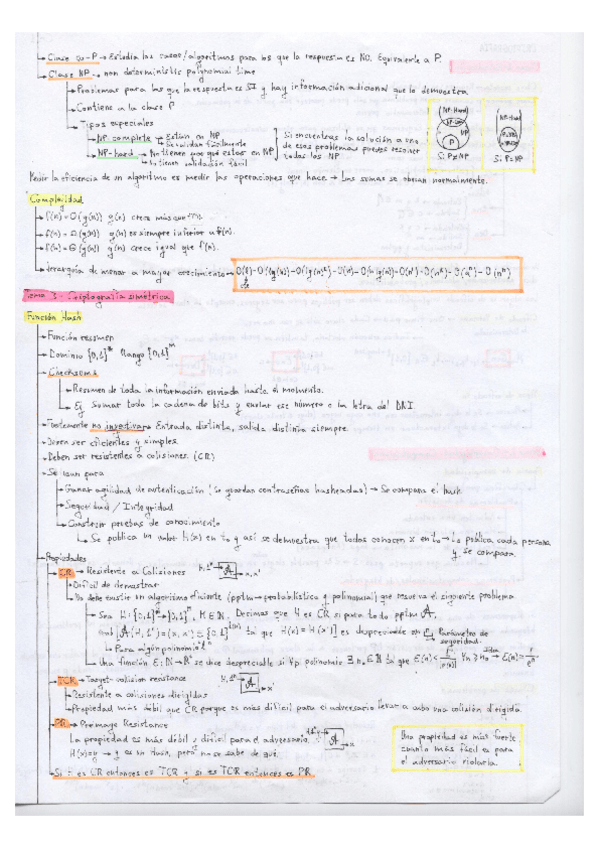 Clase co-P → Estudia los casos/algoritmos para los que la respuesta es NO. Equivalente a P.
Clase NP → non deterministic polynomial time
Problemas para los que la respuesta es SI y hay información adicional que lo demuestra
Contiene a la clase P
Tipos especiales
NP-complete → Están en NP
Se validan fácilmente
NP-hard → No tienen que estar en NP
No tienen validación fácil
Si encuentras la solución a uno de esos problemas puedes resolver todos los NP
NP-Hard
NP
P
Si P≠NP
NP-Hard
Si P=NP
Medir la eficiencia de un algoritmo es medir las operaciones que hace → Las sumas se obvian normalmente.
Complejidad
f(n) = O(g(n)) g(n) crece más que f(n).
f(n) = Ω(g(n)) g(n) es siempre inferior a f(n).
f(n) = Θ(g(n)) g(n) crece igual que f(n).
Jerarquía de menor a mayor crecimiento →
Tema 3 - Criptografía simétrica
Función Hash
Función resumen
Dominio {0,1}* Rango {0,1}ᴹ
Checksums
Resumen de toda la información enviada hasta el momento.
Ej Sumar toda la cadena de bits y enviar ese número o la letra del DNI.
Fuertemente no invertiva → Entrada distinta, salida distinta siempre.
Deben ser eficientes y simples.
Deben ser resistentes a colisiones. (CR)
Se usan para
Ganar agilidad de autenticación (Se guardan contraseñas hasheadas) → Se compara el hash
Seguridad / Integridad
Construir pruebas de conocimiento
Se publica un valor H(x) en t₀ y así se demuestra que todos conocen x en t₀ → lo publica cada persona
y se compara.
Propiedades
CR → Resistente a Colisiones
Difícil de demostrar
No debe existir un algoritmo eficiente (pptm → probabilístico y polinomial) que resuelva el siguiente problema
Decimos que H es CR si para todo pptm A,
tal que H(x) = H(x') es despreciable en
Parámetro de seguridad.
Para algún polinomio
Una función se dice despreciable si ∀p polinomio
TCR → Target-collision resistance
Resistente a colisiones dirigidas
Propiedad más débil que CR porque es más difícil para el adversario llevar a cabo una colisión dirigida
PR → Preimage Resistance
La propiedad es más débil y difícil para el adversario.
H(x) = y → y es un Hash, pero no se sabe de qué.
Si H es CR entonces es TCR y si es TCR entonces es PR
Una propiedad es más fuerte
cuanto más fácil es para
el adversario violarla.